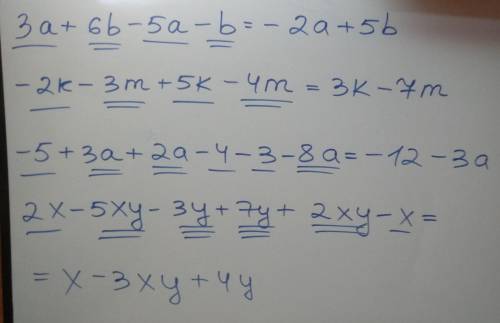 3a + 6b - 5a - b = - 2a + 5b
-2k - 3m + 5k - 4m = 3k - 7m
-5 + 3a + 2a - 4 - 3 - 8a = -12 - 3a
2x - 5xy - 3y + 7y + 2xy - x =
= x - 3xy + 4y